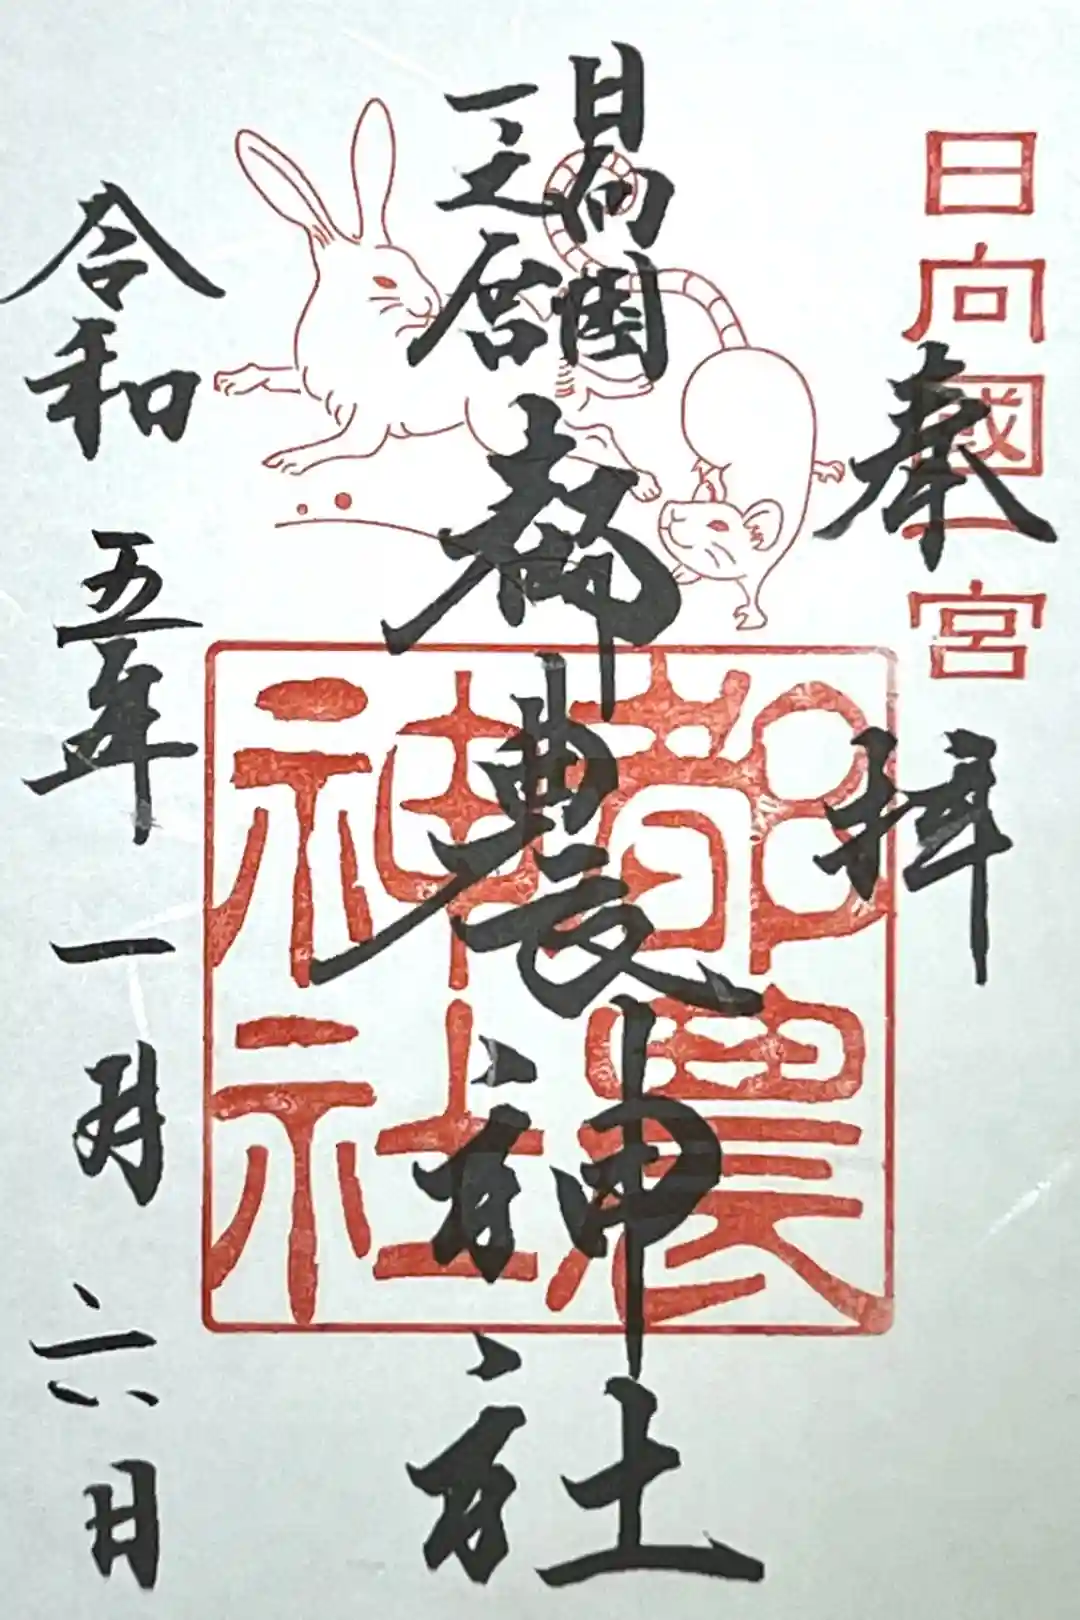 日向國一宮
奉拝
日向國
一之宮
都農神社
都農神社
令和五年一月六日